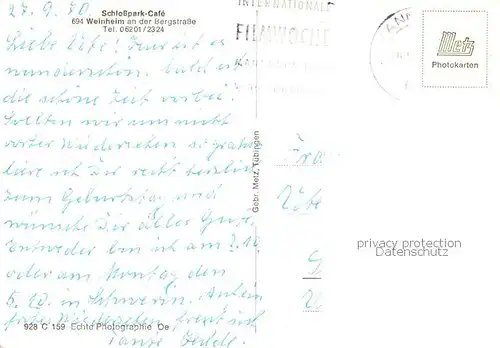 27. 9. 70.
Schloßpark-Café
694 Weinheim an der Bergstraße
Tel. 06201/2324
Liebe Ute! Hier ist es
wunderschön. Bald ist
die schöne Zeit vorbei.
Sollten wir uns nicht
vorher wiedersehen so gratu-
liere ich Dir recht herzlich
zum Geburtstag und
wünsche Dir alles Gute.
Entweder bin ich am 2.10.
oder am Montag den
5.10. in Schwerin. Auf ein
frohes Wiedersehen freut sich
Tante
928 C 159 Echte Photographie De
Gebr. Metz, Tübingen
INTERNATIONALE
FILMWOCHE
Metz
Photokarten
Frau
Ute
privacy protection
Datenschutz